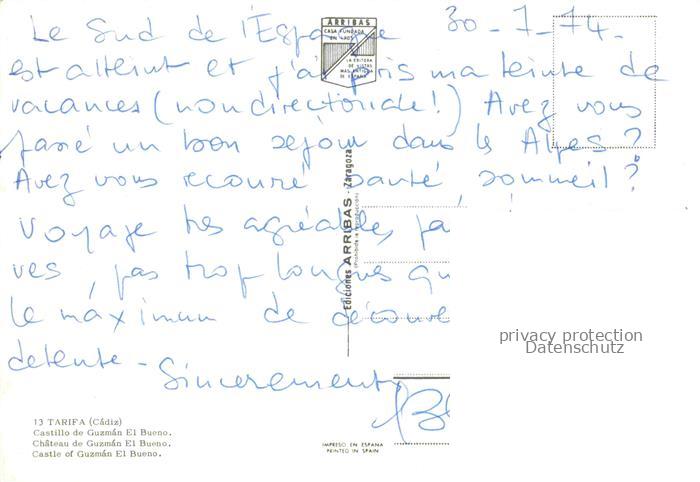 30-7-74.
Le Sud de l'Espagne
est atteint et j'ai pris ma teinte de
vacances (non directoriale!) Avez vous
passé un bon séjour dans les Alpes?
Avez vous recouvré santé, sommeil?
Voyage très agréable,
ves, pas trop longues qu
le maximum de découve
detente - Sincerement
ARRIBAS
CASA FUNDADA
EN 1905
LA EDITORA
DE VISTAS
MAS ANTIGUA
DE ESPAÑA
Ediciones ARRIBAS - Zaragoza
(Prohibida la reproducción)
privacy protection
Datenschutz
13 TARIFA (Cádiz)
Castillo de Guzmán El Bueno.
Château de Guzmán El Bueno.
Castle of Guzmán El Bueno.
IMPRESO EN ESPAÑA
PRINTED IN SPAIN